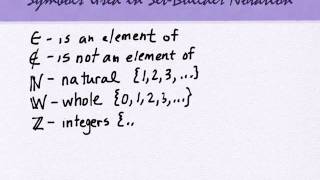 Symbols Used in Set-Builder Notation
∈ - is an element of
∉ - is not an element of
ℕ - natural {1,2,3,...}
𝕎 - whole {0,1,2,3,...}
ℤ - integers {..